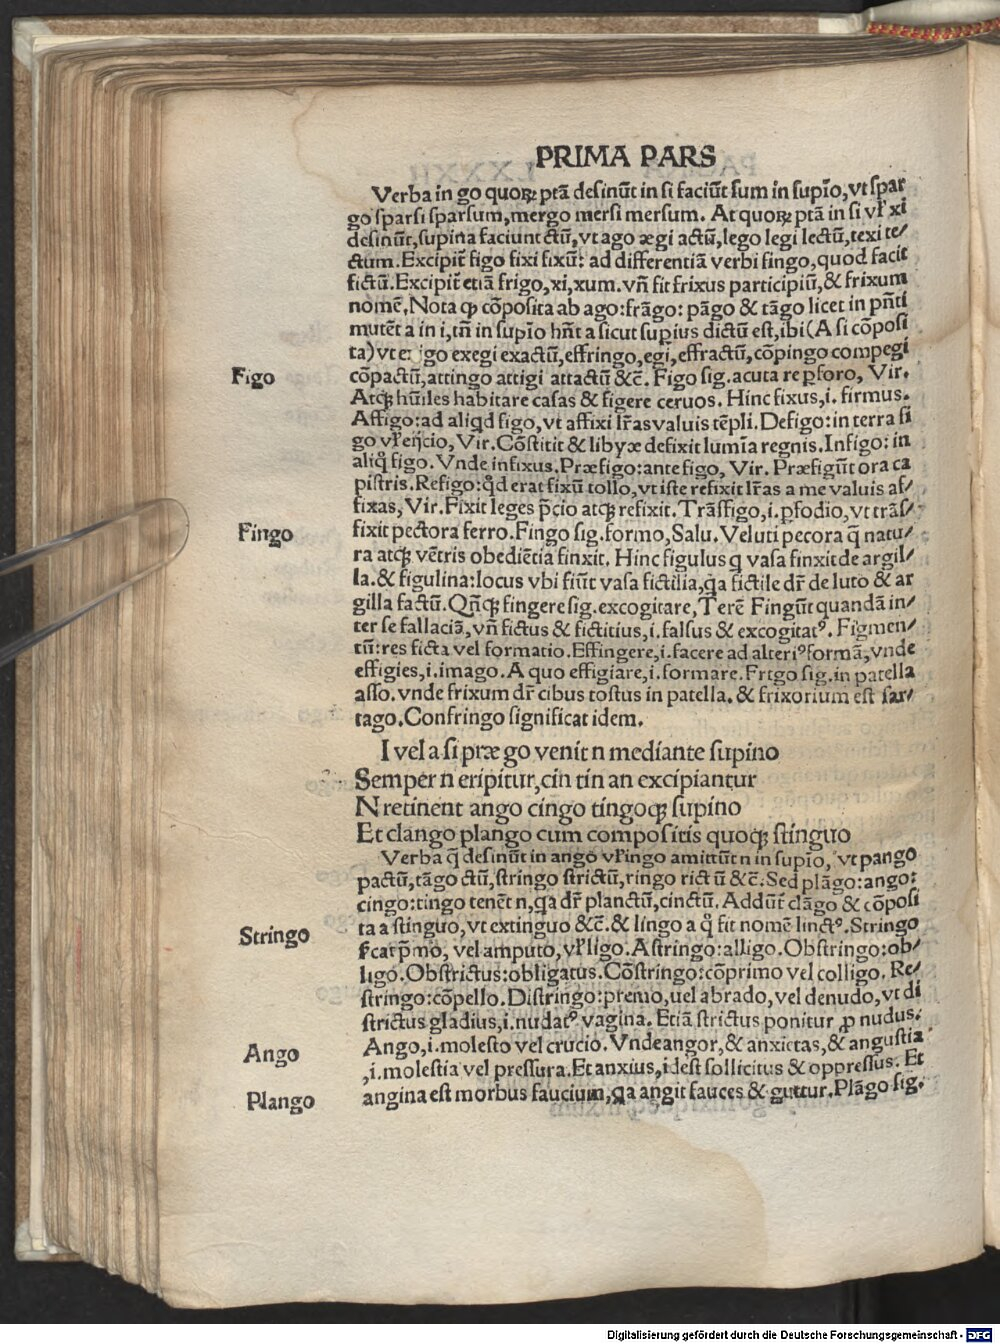 PRIMA PARS
Verba in go quoꝝ ptā desinūt in si faciūt sum in supĩo, vt spar
go sparsi sparsum, mergo mersi mersum. At quoꝝ ptā in si vľ xi
desinūt, supina faciunt ctū, vt ago ægi actū, lego legi lectū, texi te/
ctum. Excipit̃ figo fixi fixū: ad differentiā verbi fingo, quod facit
fictū. Excipit̃ etiā frigo, xi, xum. vñ fit frixus participiū, & frixum
nomē. Nota ꝙ cōposita ab ago: frāgo: pāgo & tāgo licet in pñti
mutēt a in i, tñ in supĩo hñt a sicut supius dictū est, ibi (A si cōposi
ta) vt e igo exegi exactū, effringo, egi, effractū, cōpingo compegi
Figo
cōpactū, attingo attigi attactū &c̄. Figo sig. acuta re ꝑforo, Vir.
Atqꝫ hūiles habitare casas & figere ceruos. Hinc fixus, i. firmus.
Affigo: ad aliqd figo, vt affixi lr̃as valuis tēpli. Defigo: in terra fi
go vľ eijcio, Vir. Cōstitit & libyæ defixit lumĩa regnis. Infigo: in
aliq̊ figo. Vnde infixus. Præfigo: ante figo, Vir. Præfigūt ora ca
pistris. Refigo: q̊d erat fixū tollo, vt iste refixit lr̃as a me valuis af/
fixas, Vir. Fixit leges p̄cio atqꝫ refixit. Trāsfigo, i. ꝑfodio, vt trāsf/
Fingo
fixit pectora ferro. Fingo sig. formo, Salu. Veluti pecora q̄ natu/
ra atqꝫ vētris obediētia finxit. Hinc figulus q vasa finxit de argil/
la. & figulina: locus vbi fiūt vasa fictilia, q̃a fictile dr̃ de luto & ar
gilla factū. Qñqꝫ fingere sig. excogitare, Terē Fingūt quandā in/
ter se fallaciā, vñ fictus & fictitius, i. falsus & excogitatꝰ. Figmen/
tū: res ficta vel formatio. Effingere, i. facere ad alteriꝰ formā, vnde
effigies, i. imago. A quo effigiare, i. formare. Frigo sig. in patella
asso. vnde frixum dr̃ cibus tostus in patella. & frixorium est sar/
tago. Confringo significat idem.
I vel a si præ go venit n mediante supino
Semper n eripitur, cin tin an excipiantur
N retinent ango cingo tingoqꝫ supino
Et clango plango cum compositis quoqꝫ stinguo
Verba q̄ desinūt in ango vľ ingo amittūt n in supĩo, vt pango
pactū, tāgo ctū, stringo strictū, ringo rictū &c̄. Sed plāgo: ango:
cingo: tingo tenēt n, q̃a dr̃ planctū, cinctū. Addūt̃ clāgo & cōposi
ta a stinguo, vt extinguo &c̄. & lingo a q̊ fit nomē linctꝰ. Stringo
Stringo
ẜcat p̄mo, vel amputo, vľ ligo. Astringo: alligo. Obstringo: ob/
ligo. Obstrictus: obligatus. Cōstringo: cōprimo vel colligo. Re/
stringo: cōpello. Distringo: premo, uel abrado, vel denudo, vt di
strictus gladius, i. nudatꝰ vagina. Etiā strictus ponitur ꝓ nudus.
Ango
Ango, i. molesto vel crucio. Vnde angor, & anxietas, & angustia
, i. molestia vel pressura. Et anxius, idest sollicitus & oppressus. Et
Plango
angina est morbus faucium, q̃a angit fauces & guttur. Plāgo sig.
Digitalisierung gefördert durch die Deutsche Forschungsgemeinschaft - DFG